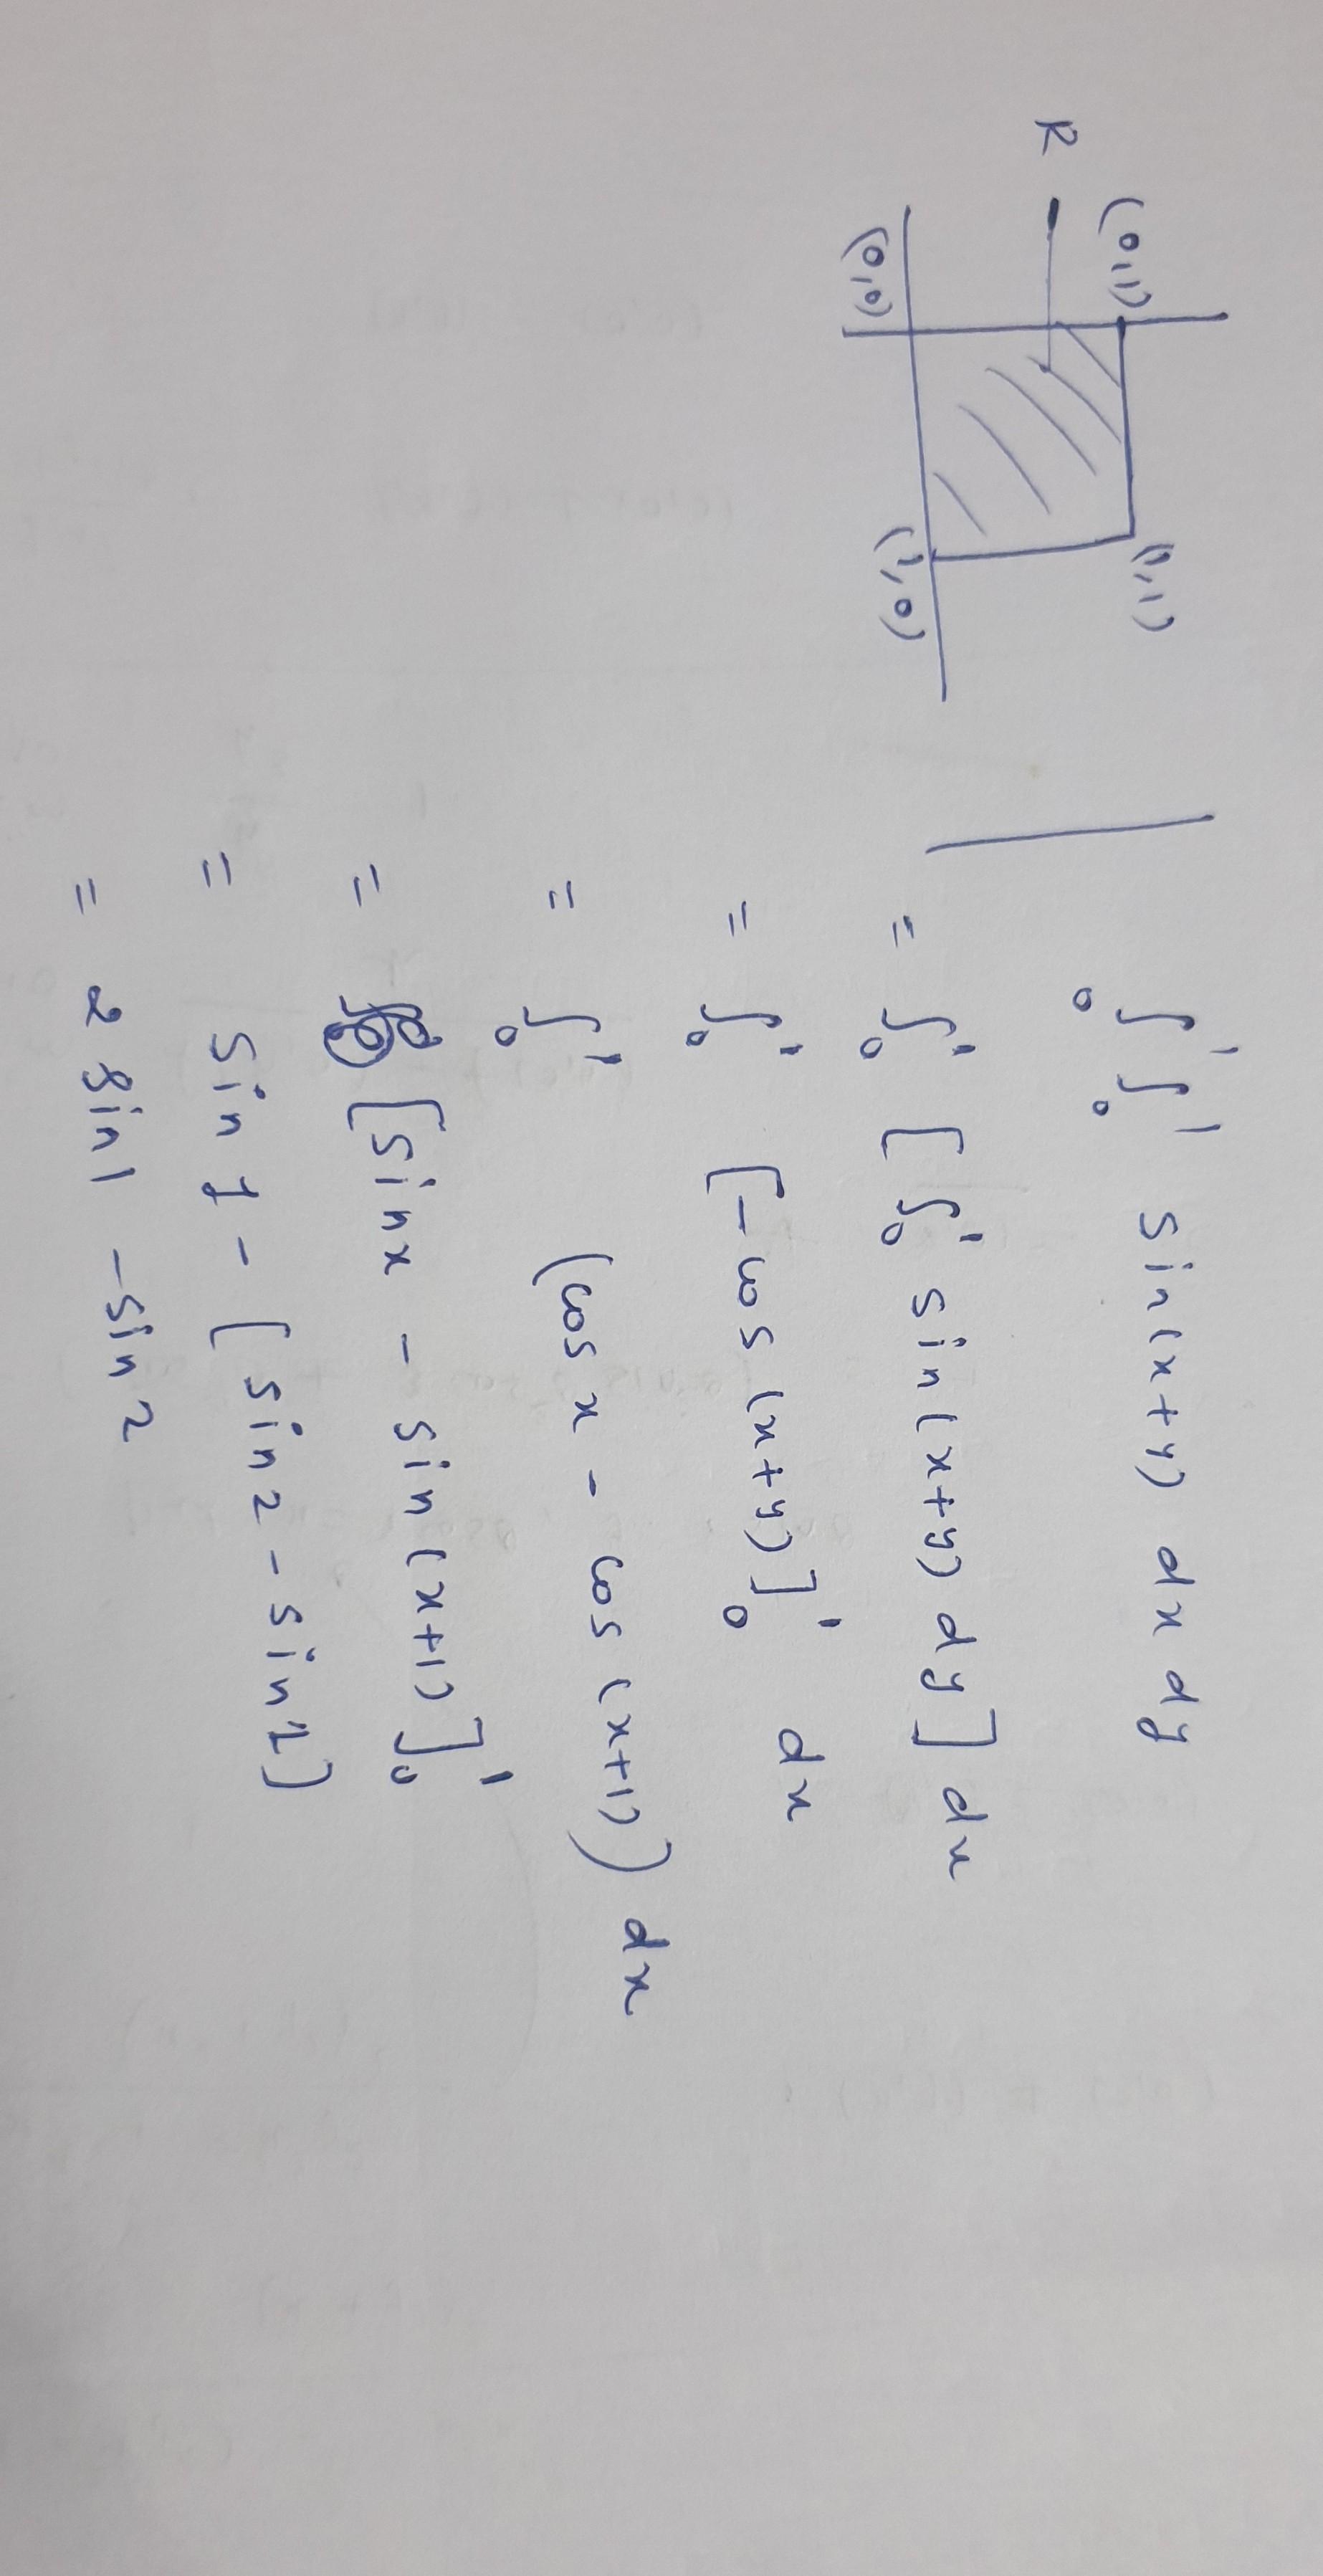 (0,1)
(1,1)
R
(0,0)
(1,0)
∫₀¹ ∫₀¹ sin(x+y) dx dy
= ∫₀¹ [∫₀¹ sin(x+y) dy] dx
= ∫₀¹ [-cos(x+y)]₀¹ dx
= ∫₀¹ (cos x - cos(x+1)) dx
= [sin x - sin(x+1)]₀¹
= sin 1 - [sin 2 - sin 1)
= 2 sin 1 - sin 2